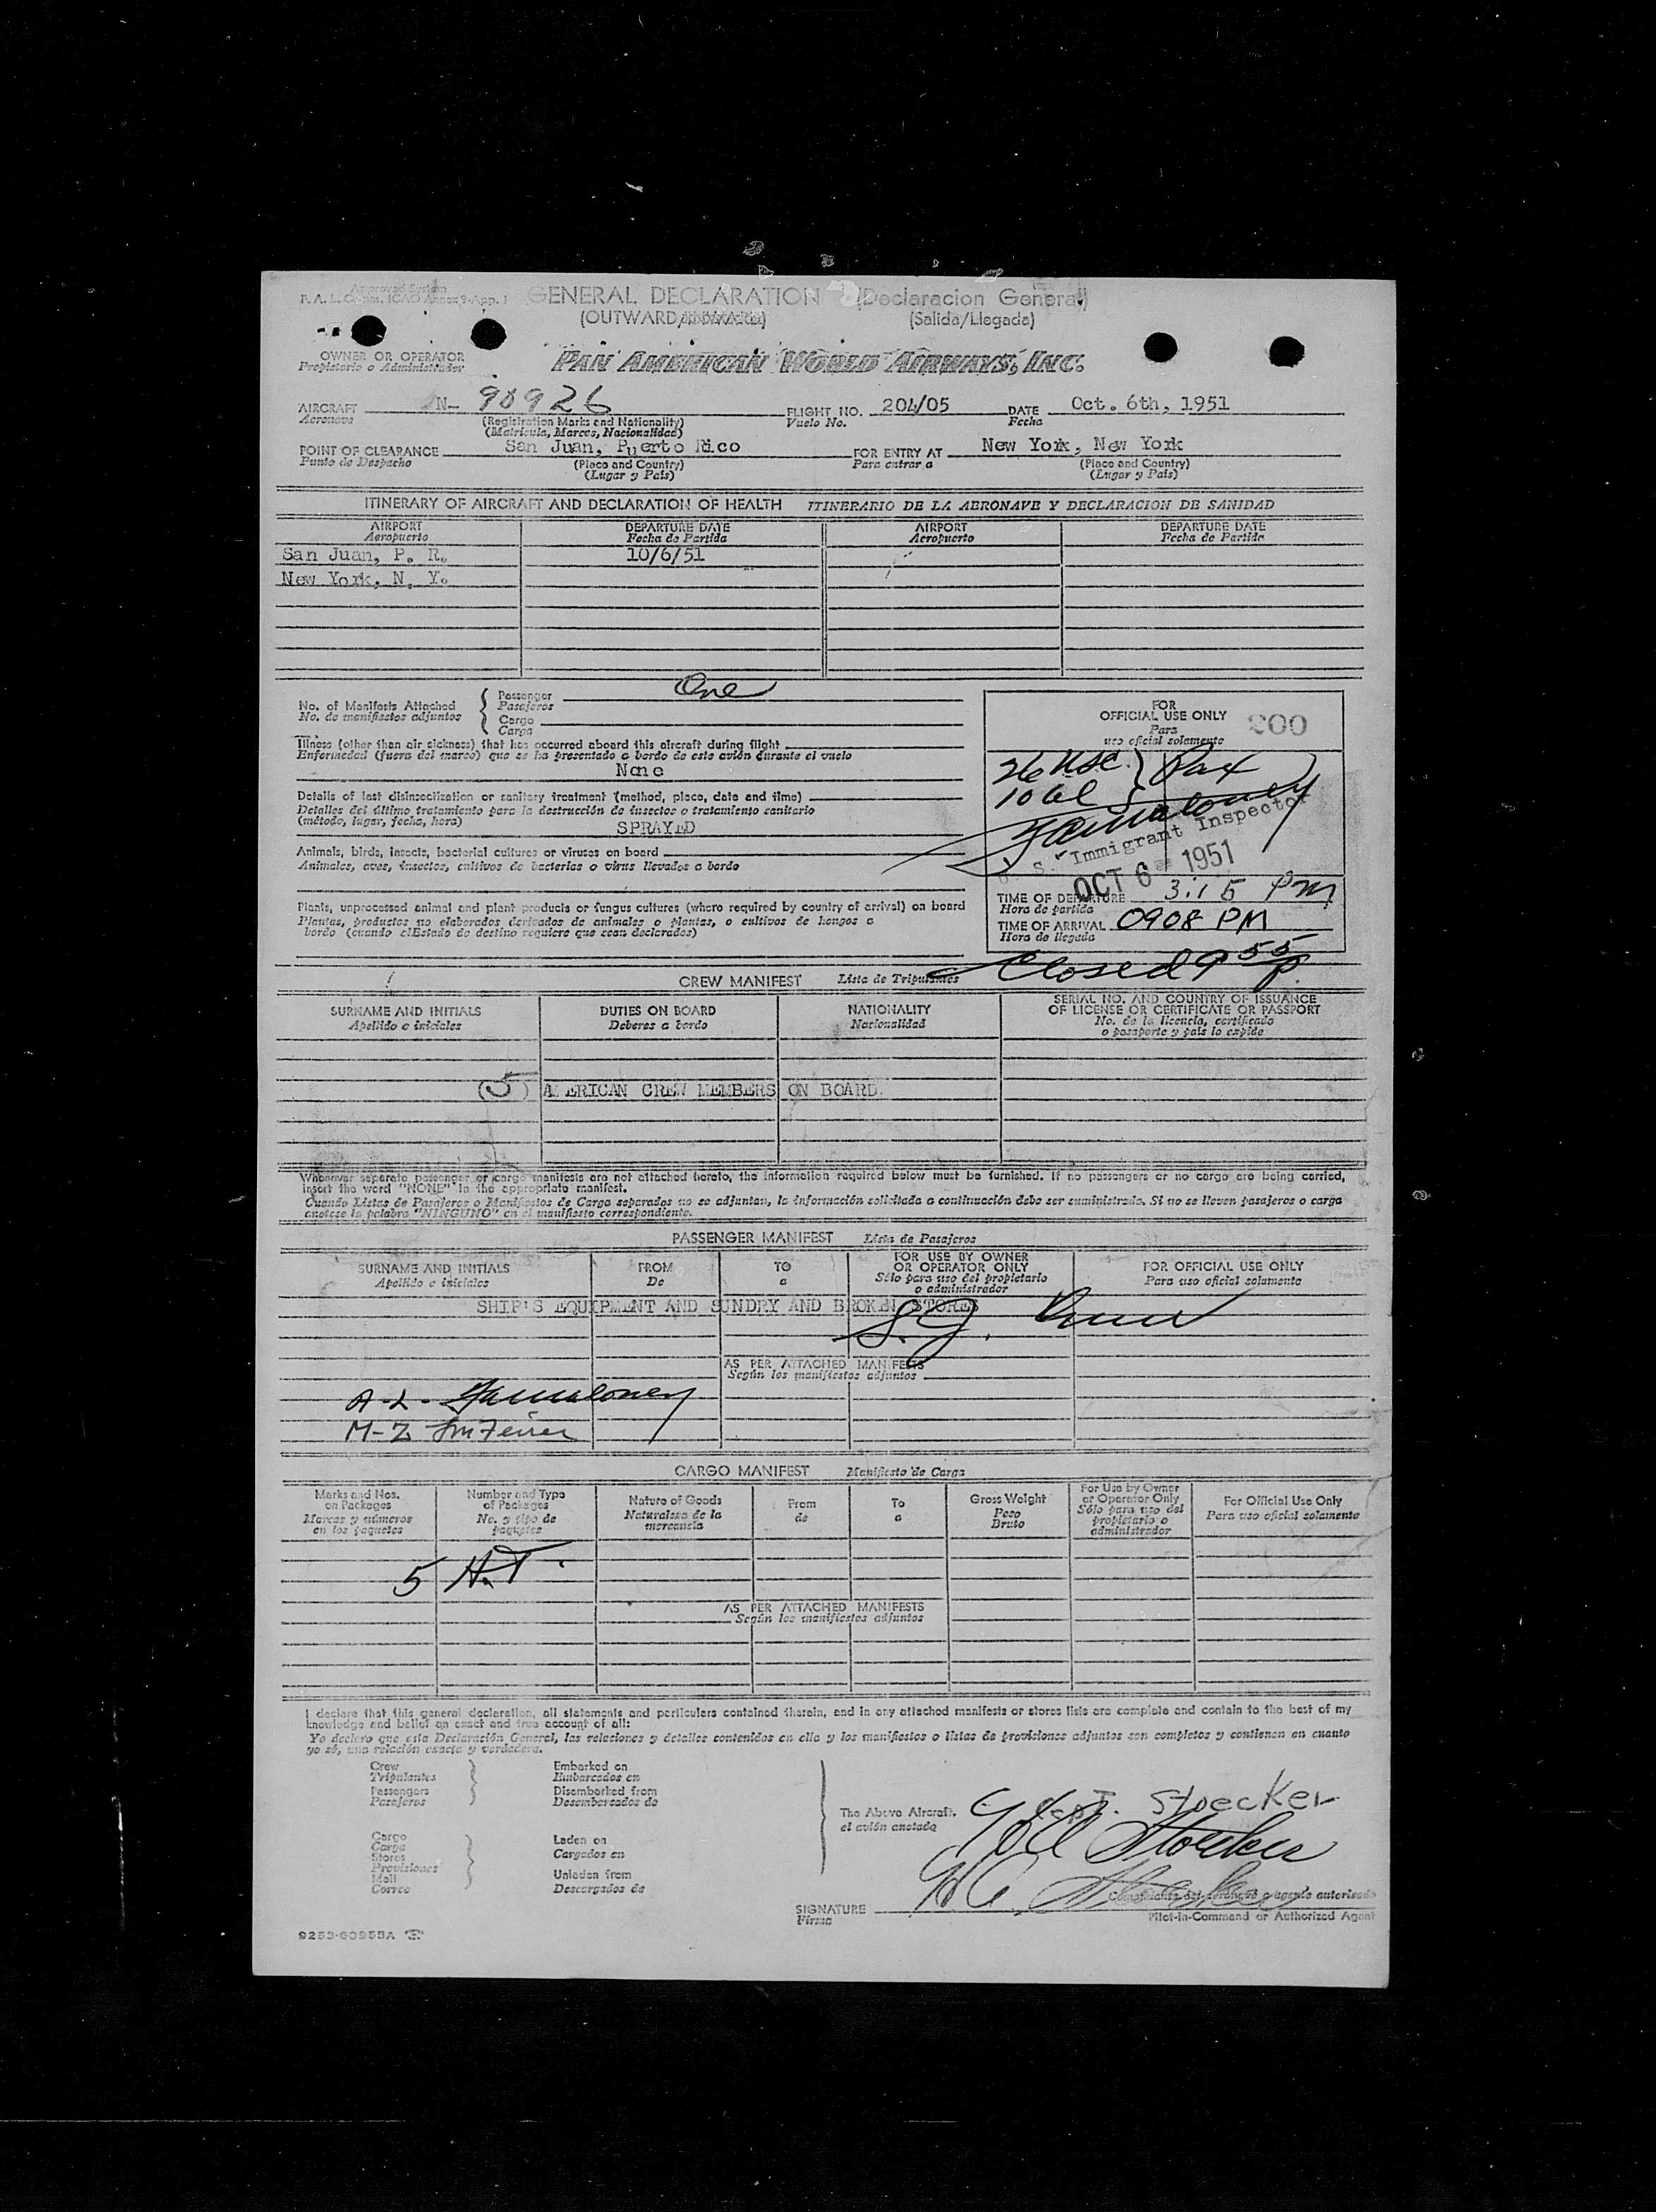 Approved System
F. A. L. Comm. ICAO Annex 9-App. 1
GENERAL DECLARATION (Declaracion General)
(OUTWARD/INWARD) (Salida/Llegada)
OWNER OR OPERATOR
Propietario o Administrador
PAN AMERICAN WORLD AIRWAYS, INC.
AIRCRAFT N- 90926 FLIGHT NO. 204/05 DATE Oct. 6th, 1951
Aeronave (Registration Marks and Nationality) Vuelo No. Fecha
(Matricula, Marcas, Nacionalidad)
POINT OF CLEARANCE San Juan, Puerto Rico FOR ENTRY AT New York, New York
Punto de Despacho (Place and Country) Para entrar a (Place and Country)
(Lugar y Pais) (Lugar y Pais)
ITINERARY OF AIRCRAFT AND DECLARATION OF HEALTH ITINERARIO DE LA AERONAVE Y DECLARACION DE SANIDAD
AIRPORT DEPARTURE DATE AIRPORT DEPARTURE DATE
Aeropuerto Fecha de Partida Aeropuerto Fecha de Partida
San Juan, P. R. 10/6/51
New York, N. Y.
No. of Manifests Attached Passenger One
No. de manifiestos adjuntos Pasajeros
Cargo
Carga
Illness (other than air sickness) that has occurred aboard this aircraft during flight
Enfermedad (fuera del mareo) que se ha presentado a bordo de este avión durante el vuelo
None
Details of last disinsectization or sanitary treatment (method, place, date and time)
Detalles del último tratamiento para la destrucción de insectos o tratamiento sanitario
(método, lugar, fecha, hora)
SPRAYED
Animals, birds, insects, bacterial cultures or viruses on board
Animales, aves, insectos, cultivos de bacterias o virus llevados a bordo
Plants, unprocessed animal and plant products or fungus cultures (where required by country of arrival) on board
Plantas, productos no elaborados derivados de animales o plantas, o cultivos de hongos a
bordo (cuando el Estado de destino requiere que sean declarados)
FOR
OFFICIAL USE ONLY 200
Para
uso oficial solamente
26 USC } Pax
10
U. S. Immigrant Inspector
OCT 6 - 1951
TIME OF DEPARTURE 3:15 PM
Hora de partida
TIME OF ARRIVAL 0908 PM
Hora de llegada
Closed 9 55 P
CREW MANIFEST Lista de Tripulantes
SURNAME AND INITIALS DUTIES ON BOARD NATIONALITY SERIAL NO. AND COUNTRY OF ISSUANCE
OF LICENSE OR CERTIFICATE OR PASSPORT
Apellido e iniciales Deberes a bordo Nacionalidad No. de la licencia, certificado
o pasaporte y pais lo expide
(5) AMERICAN CREW MEMBERS ON BOARD
Whenever separate passenger or cargo manifests are not attached hereto, the information required below must be furnished. If no passengers or no cargo are being carried,
insert the word "NONE" in the appropriate manifest.
Cuando Listas de Pasajeros o Manifiestos de Carga separados no se adjuntan, la información solicitada a continuación debe ser suministrada. Si no se llevan pasajeros o carga
anotese la palabra "NINGUNO" en el manifiesto correspondiente.
PASSENGER MANIFEST Lista de Pasajeros
SURNAME AND INITIALS FROM TO FOR USE BY OWNER
OR OPERATOR ONLY FOR OFFICIAL USE ONLY
Apellido e iniciales De a Sólo para uso del propietario
o administrador Para uso oficial solamente
SHIP'S EQUIPMENT AND SUNDRY AND BROKEN STORES
AS PER ATTACHED MANIFESTS
Según los manifiestos adjuntos
CARGO MANIFEST Manifiesto de Carga
Marks and Nos.
on Packages
Marcas y números
en los paquetes
Number and Type
of Packages
No. y tipo de
paquetes
Nature of Goods
Naturaleza de la
mercancia
From
de
To
a
Gross Weight
Peso
Bruto
For Use by Owner
or Operator Only
Sólo para uso del
propietario o
administrador
For Official Use Only
Para uso oficial solamente
5 H.T.
AS PER ATTACHED MANIFESTS
Según los manifiestos adjuntos
I declare that this general declaration, all statements and particulars contained therein, and in any attached manifests or stores lists are complete and contain to the best of my
knowledge and belief an exact and true account of all:
Yo declaro que esta Declaración General, las relaciones y detalles contenidos en ella y los manifiestos o listas de provisiones adjuntos son completos y contienen en cuanto
yo sé, una relación exacta y verdadera.
Crew Embarked on
Tripulantes Embarcados en
Passengers Disembarked from
Pasajeros Desembarcados de
The Above Aircraft.
el avión anotado
Capt. Stoecker
Cargo Laden on
Carga Cargados en
Stores
Provisiones
Mail Unladen from
Correo Descargados de
SIGNATURE
Firma
Comandante del aeronave o agente autorizado
Pilot-in-Command or Authorized Agent